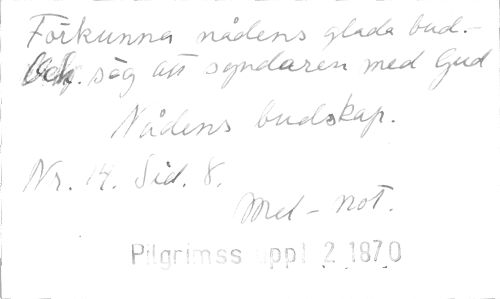 Förkunna nådens glada bud.-
Och. säg att syndaren med Gud
Nådens budskap.
Nr. 14. Sid. 8.
Mel - not.
Pilgrimss uppl 2 1870